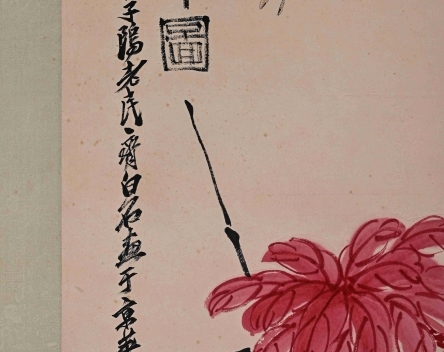 圖
子陽老民齊白石畫于京華